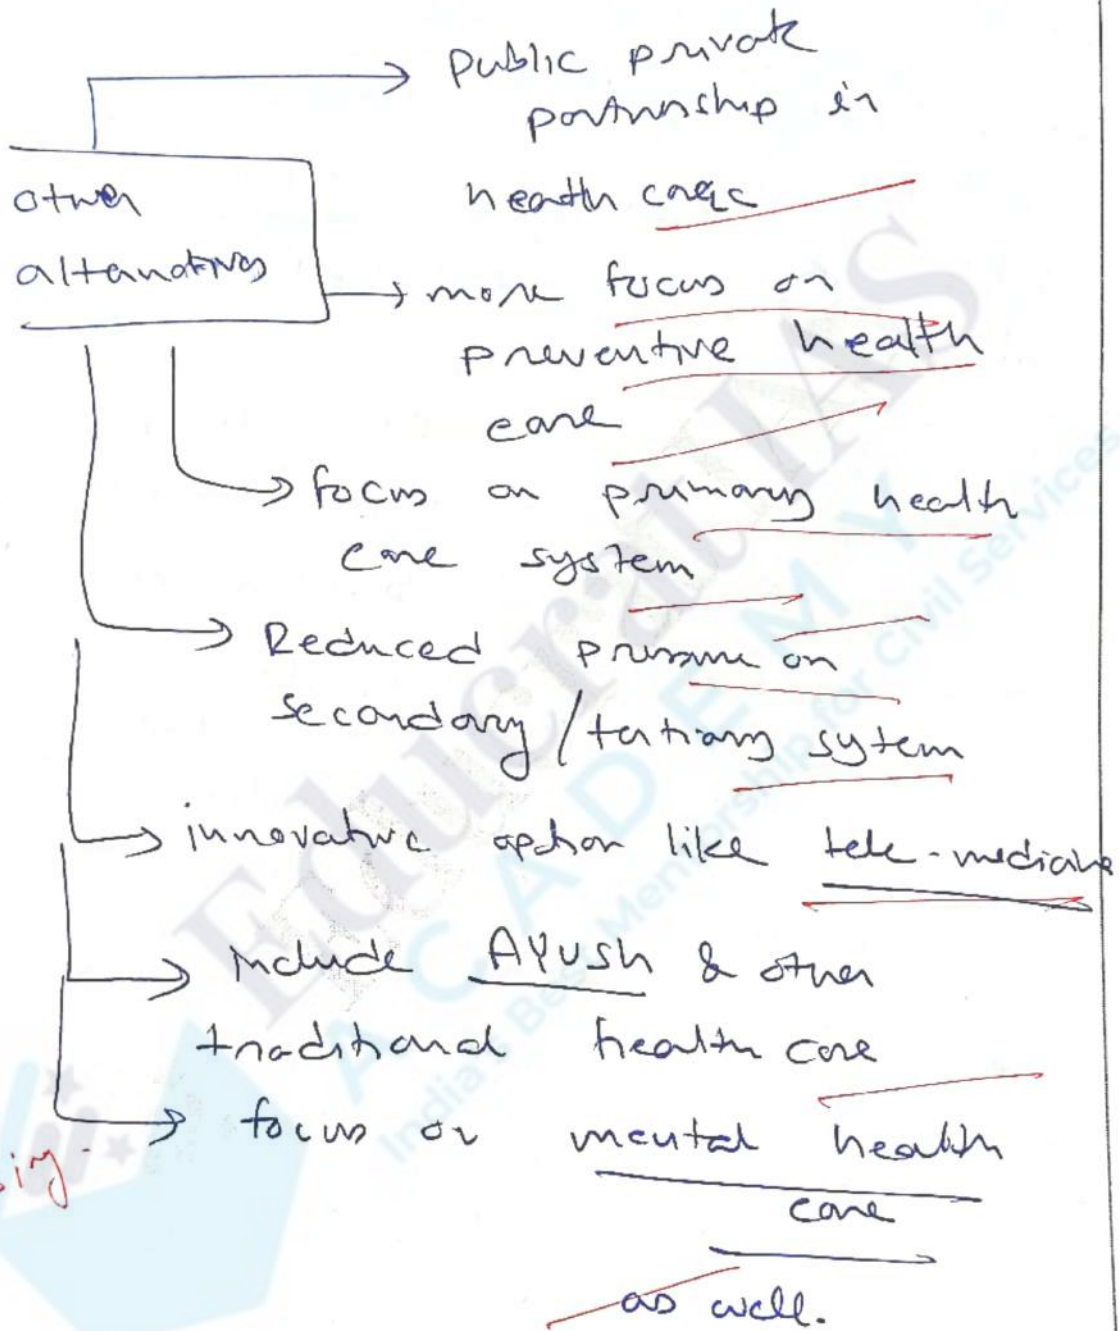 public private
partnership in
health care
other
alternatives
more focus on
preventive health
care
focus on primary health
care system
Reduced pressure on
secondary / tertiary sytem
innovative option like tele-medicine
include AYUSH & other
traditional health care
focus on mental health
care
as well.
Educrat IAS
ACADEMY
India's Best Mentorship for Civil Services